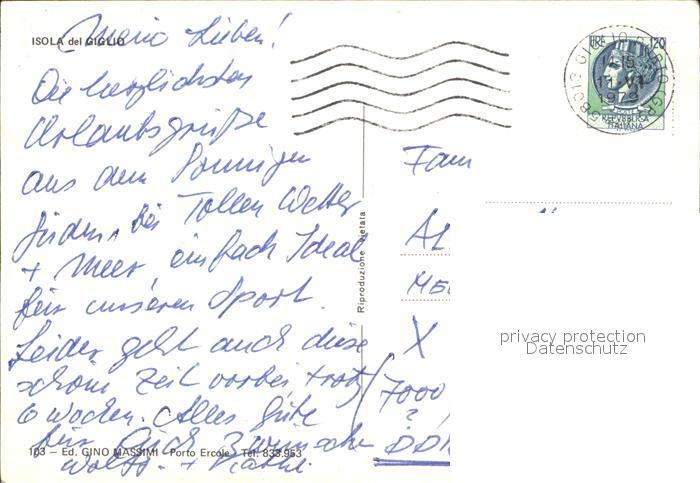 ISOLA del GIGLIO
Meine Lieben!
Die herzlichsten
Urlaubsgrüße
aus dem Sonnigen
Süden, bei Tollen Wetter
+ Meer, einfach Ideal
für unseren Sport.
Leider geht auch diese
schöne Zeit vorbei trotz
6 Wochen. Alles Gute
für Euch wünschen
Wolfg. +
103 – Ed. GINO MASSIMI - Porto Ercole - Tel. 833.953
Riproduzione vietata
LIRE 120
REPVBBLICA
ITALIANA
58013 GIGLIO
1979
Fam
AL
ME
X
7000
?
DD
privacy protection
Datenschutz